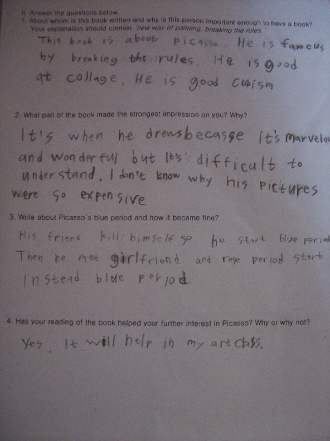 II. Answer the questions below.
1. About whom is this book written and why is this person important enough to have a book?
Your explanation should contain: new way of painting, breaking the rules.
This book is about picasso. He is famous
by breaking the rules. He is good
at collage. He is good cubism
2. What part of the book made the strongest impression on you? Why?
It's when he drews becasse it's marvelou
and wonderfull but It's difficult to
understand. I don't know why his pictures
were so expensive
3. Write about Picasso's blue period and how it became fine?
His friend kill himself so he start blue period
Then he met girlfriend and rose period start
instead blue period
4. Has your reading of the book helped your further interest in Picasso? Why or why not?
Yes, It will help in my art class.